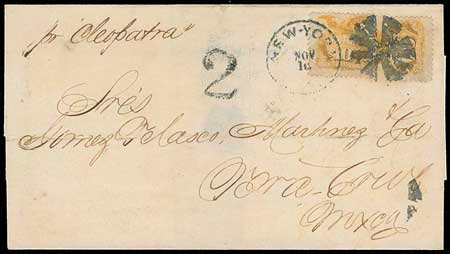 pr "Cleopatra"
NEW-YOR
NOV
16
2
Sres
Gomez Velasco, Martinez & Ca
Vera-Cruz
Mexco